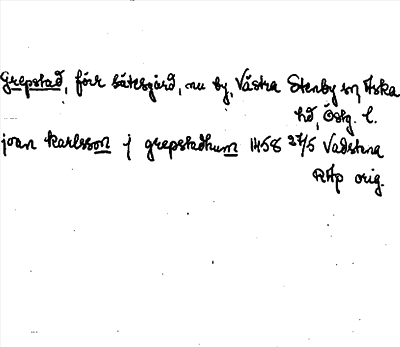 Grepstad, förr sätesgård, nu by, Västra Stenby sn, Aska
hd, Östg. l.
joan Karlsson j grepstadhum 1458 27/5 Vadstena
RAp orig.